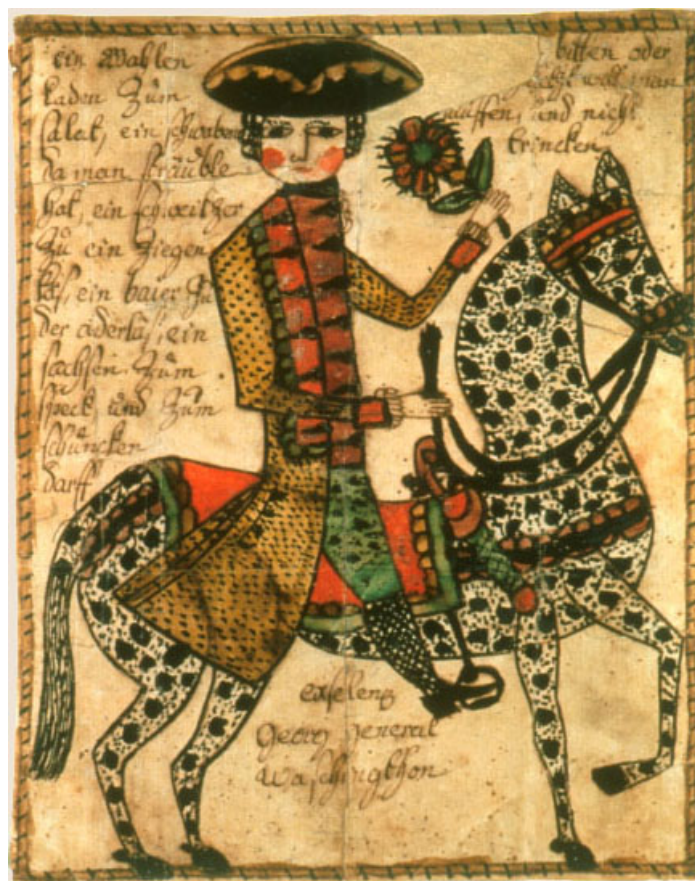 ein Wahlen
laden Zum
Salat, ein schwaben
da man kräuble
hat, ein schweitzer
Zu ein Ziegen
käs, ein baier Zu
der aderläs, ein
sachsen Zum
speck und Zum
schuncken
darff
bitten oder
man
müssen, und nicht
trincken
exselenz
Georg general
Waschingthon